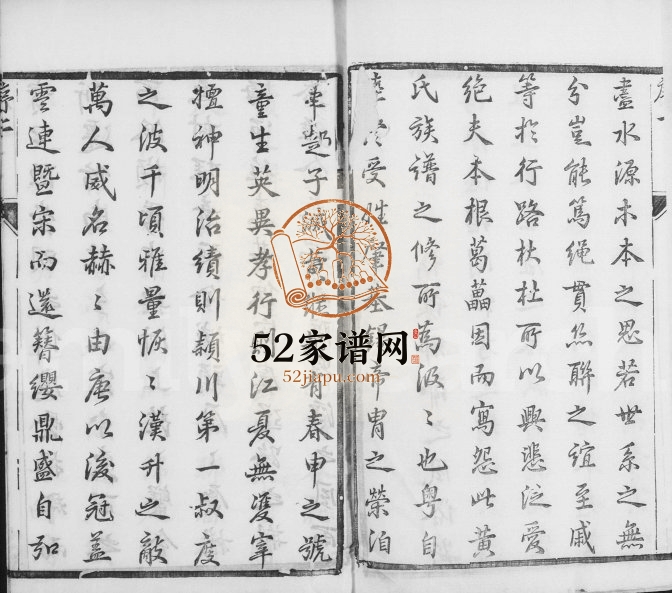 盡水源木本之思若世系之無
分豈能篤繩貫絲聯之誼至戚
等於行路杕杜所以興悲泛愛
絕夫本根葛藟因而寓怨此黃
氏族譜之修所為汲〻也粵自
受姓肇基帝胄之榮洎
子春申之號
童生英異孝行江夏無雙宰
擅神明治績則潁川第一叔度
之波千頃雅量恢〻漢升之敵
萬人威名赫〻由唐以後冠蓋
雲連暨宋而還簪纓鼎盛自弘
序二
52家谱网
52jiapu.com